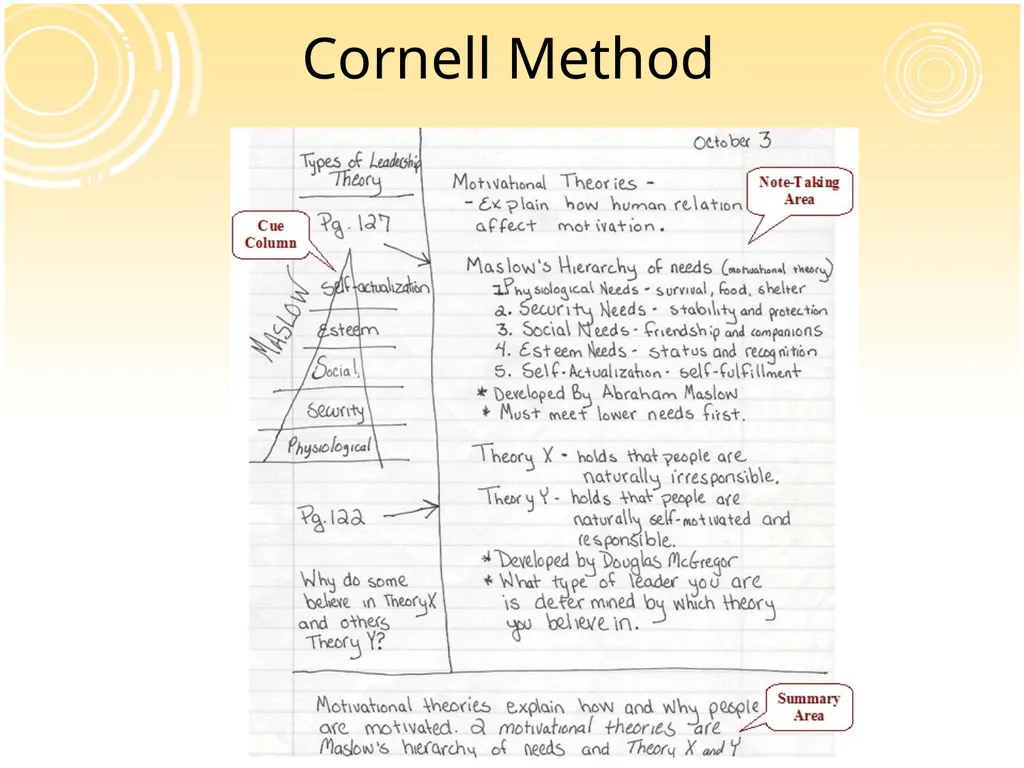 Cornell Method
October 3
Types of Leadership
Theory
Pg. 127
Cue
Column
MASLOW
Self-actualization
Esteem
Social
Security
Physiological
Pg. 122
Why do some
believe in Theory X
and others
Theory Y?
Note-Taking
Area
Motivational Theories -
- Explain how human relation
affect motivation.
Maslow's Hierarchy of needs (motivational theory)
1. Physiological Needs - survival, food, shelter
2. Security Needs - stability and protection
3. Social Needs - friendship and companions
4. Esteem Needs - status and recognition
5. Self-Actualization - self-fulfillment
* Developed By Abraham Maslow
* Must meet lower needs first.
Theory X - holds that people are
naturally irresponsible.
Theory Y - holds that people are
naturally self-motivated and
responsible.
* Developed by Douglas McGregor
* What type of leader you are
is determined by which theory
you believe in.
Motivational theories explain how and why people
are motivated. 2 motivational theories are
Maslow's hierarchy of needs and Theory X and Y
Summary
Area